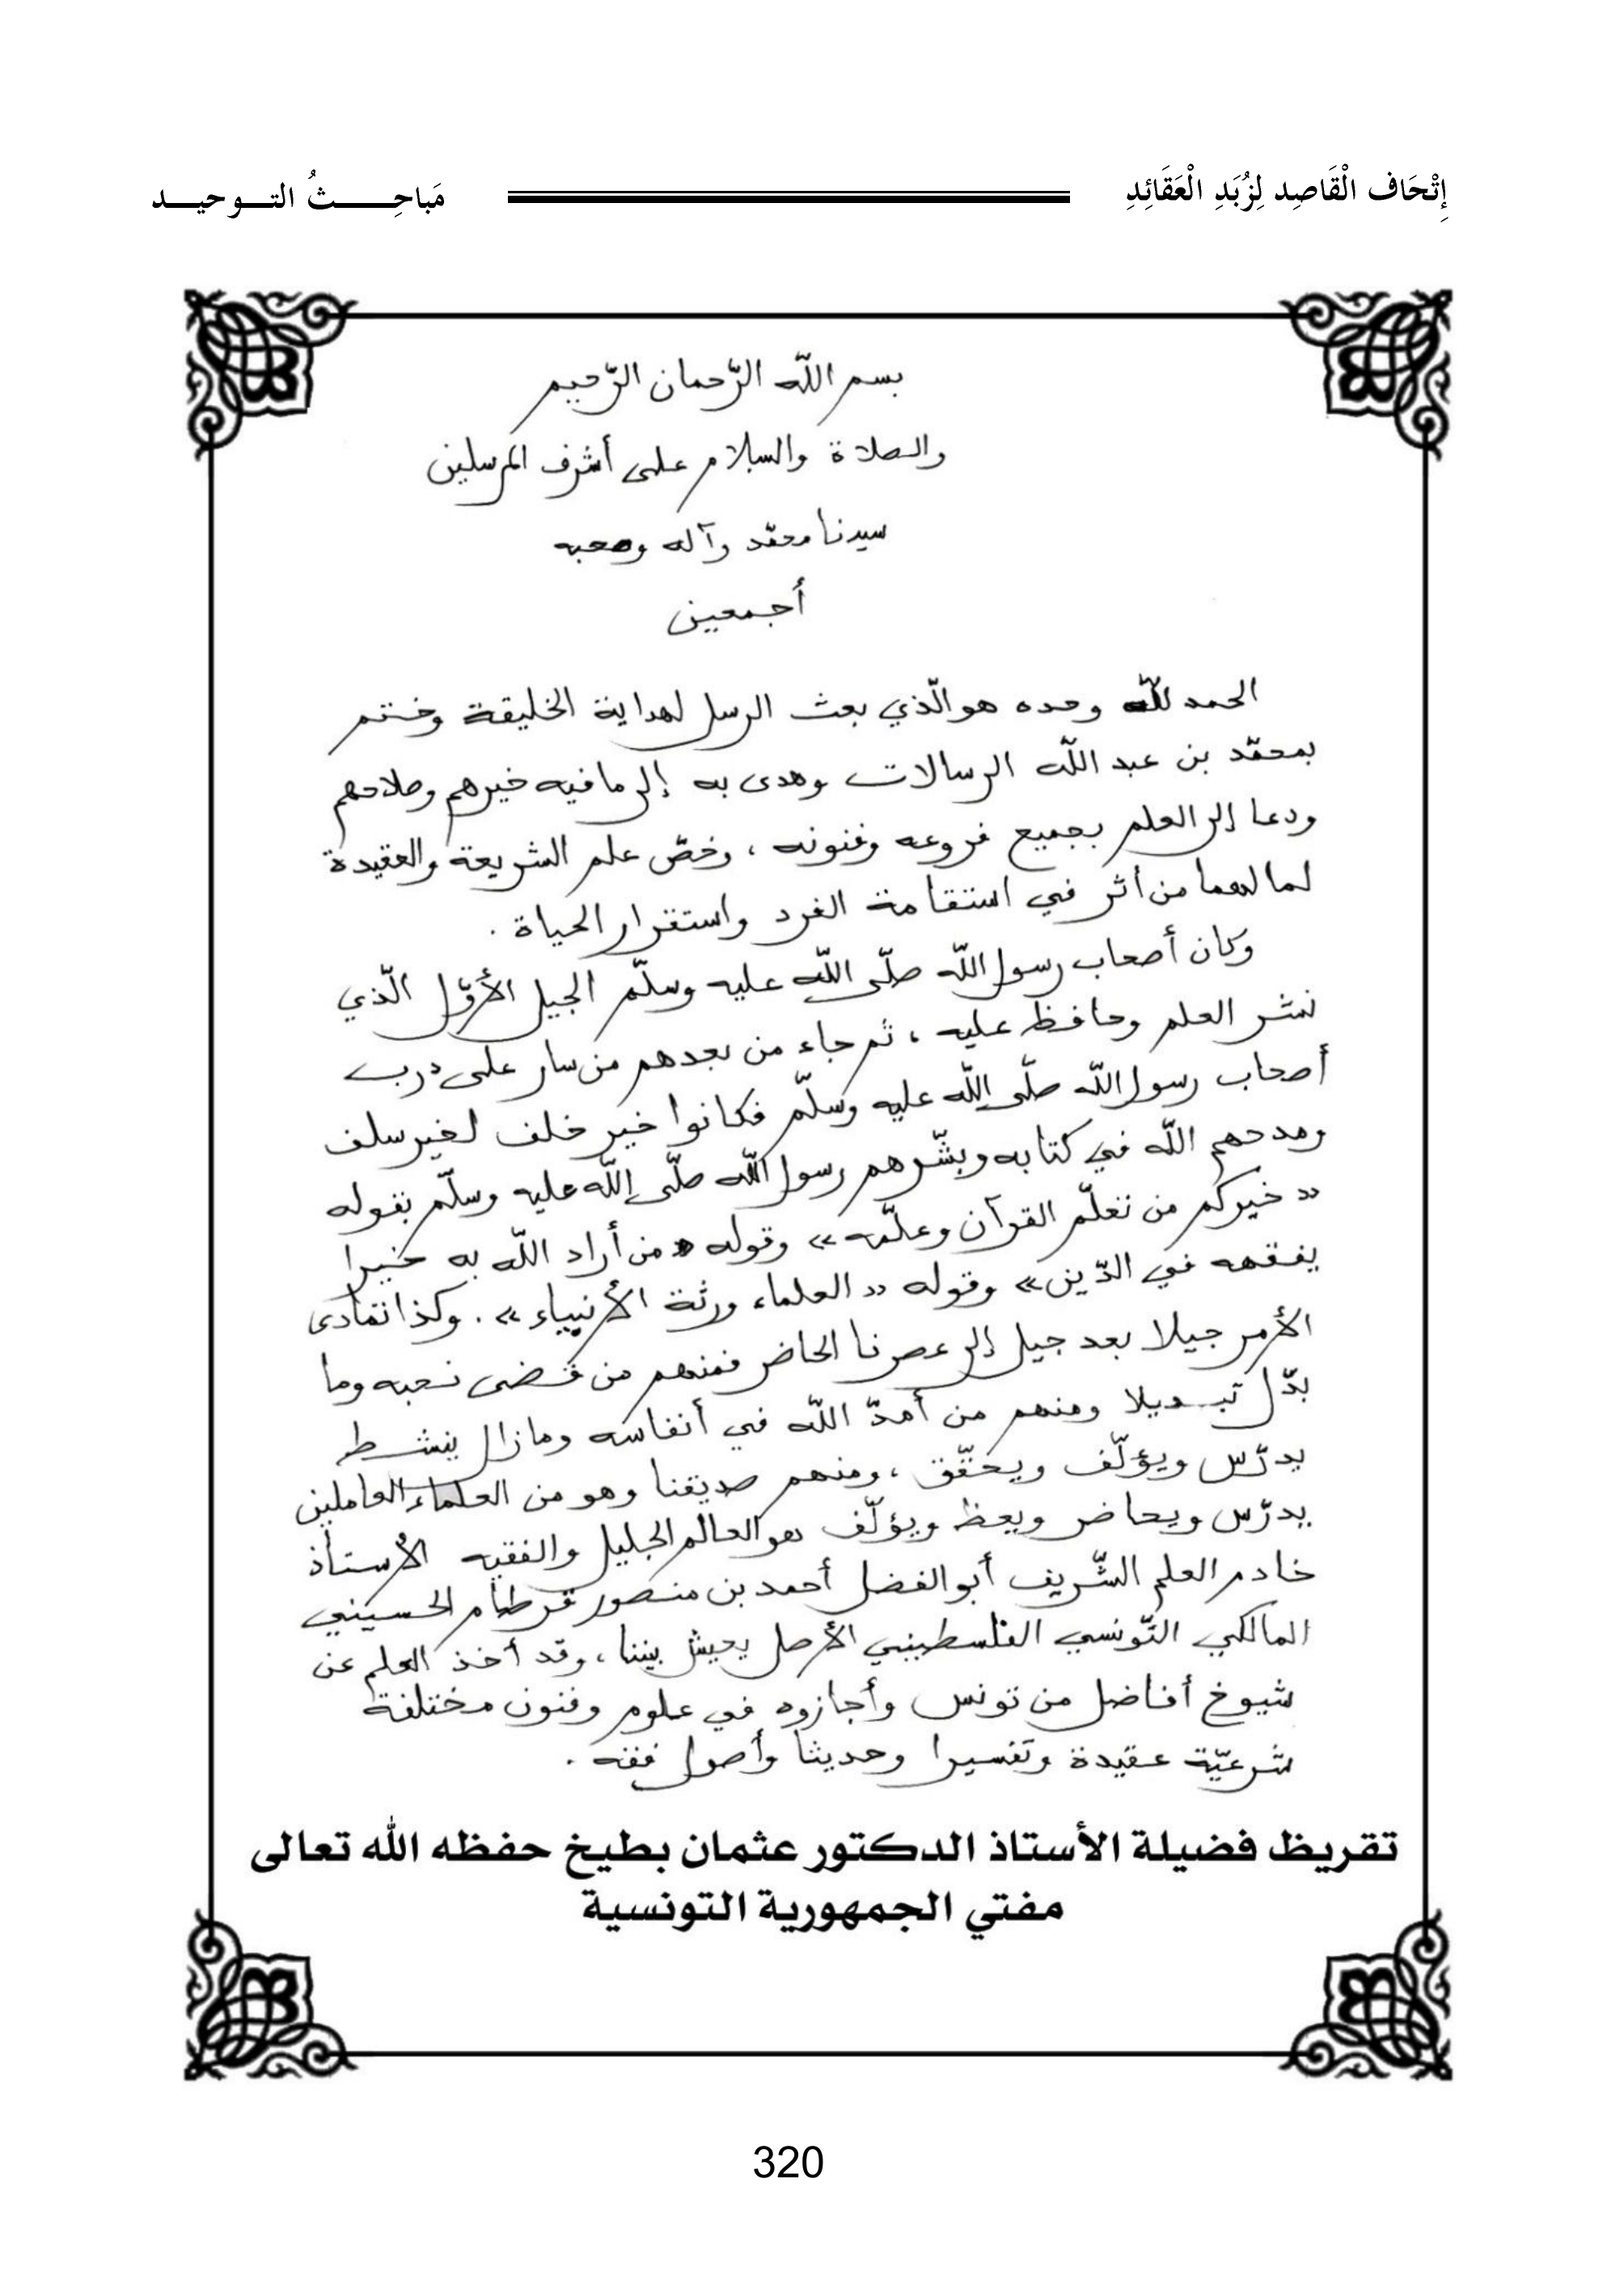 إِتْحَاف الْقَاصِد لِزُبَدِ الْعَقَائِدِ
مَباحِـــــثُ التـــوحيـــد
بسم اللّه الرّحمان الرّحيم
والصلاة والسلام على أشرف المرسلين
سيدنا محمّد وآله وصحبه
أجمعين
الحمد للّه وحده هو الّذي بعث الرسل لهداية الخليقة وختم
بمحمّد بن عبد اللّه الرسالات وهدى به إلى ما فيه خيرهم وصلاحهم
ودعا إلى العلم بجميع فروعه وفنونه ، وخصّ علم الشريعة والعقيدة
لما لهما من أثر في استقامة الفرد واستقرار الحياة .
وكان أصحاب رسول اللّه صلّى اللّه عليه وسلّم الجيل الأوّل الّذي
نشر العلم وحافظ عليه ، ثم جاء من بعدهم من سار على درب
أصحاب رسول اللّه صلّى اللّه عليه وسلّم فكانوا خير خلف لخير سلف
ومدحهم اللّه في كتابه وبشّرهم رسول اللّه صلّى اللّه عليه وسلّم بقوله
« خيركم من تعلّم القرآن وعلّمه » وقوله « من أراد اللّه به خيرا
يفقهه في الدّين » وقوله « العلماء ورثة الأنبياء » . وكذا تمادى
الأمر جيلا بعد جيل إلى عصرنا الحاضر فمنهم من قضى نحبه وما
بدّل تبديلا ومنهم من أمدّ اللّه في أنفاسه ومازال ينشط
يدرّس ويؤلّف ويحقّق ، ومنهم صديقنا وهو من العلماء العاملين
يدرّس ويحاضر ويعظ ويؤلّف هو العالم الجليل والفقيه الأستاذ
خادم العلم الشّريف أبو الفضل أحمد بن منصور قرطام الحسيني
المالكي التّونسي الفلسطيني الأصل يعيش بيننا ، وقد أخذ العلم عن
شيوخ أفاضل من تونس وأجازوه في علوم وفنون مختلفة
شرعيّة عقيدة وتفسيرا وحديثا وأصول فقه .
تقريظ فضيلة الأستاذ الدكتور عثمان بطيخ حفظه الله تعالى
مفتي الجمهورية التونسية
320